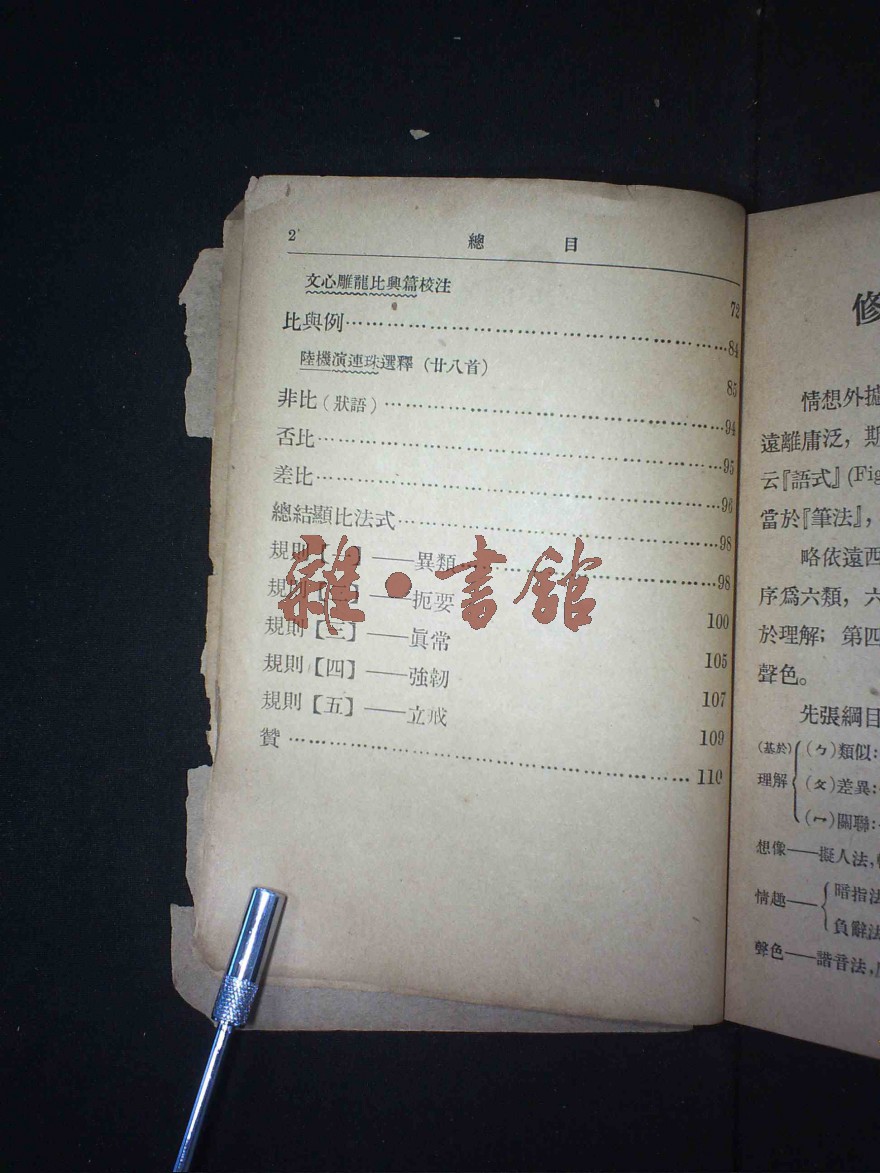 2
總 目
文心雕龍比興篇校注 72
比與例……84
陸機演連珠選釋（廿八首） 85
非比(狀語)……94
否比……95
差比……96
總結顯比法式……98
規則【一】——異類……98
規則【二】——扼要 100
規則【三】——眞常 105
規則【四】——強韌 107
規則【五】——立戒 109
贊……110
雜·書館
修
情想外攄
遠離庸泛，斯
云『語式』(Fig
當於『筆法』，
略依遠西
序爲六類，六
於理解；第四
聲色。
先張綱目
(基於)理解
(ㄅ)類似：
(ㄆ)差異：
(ㄇ)關聯：
想像——擬人法，
情趣——
暗指法
負辭法
聲色——諧音法，